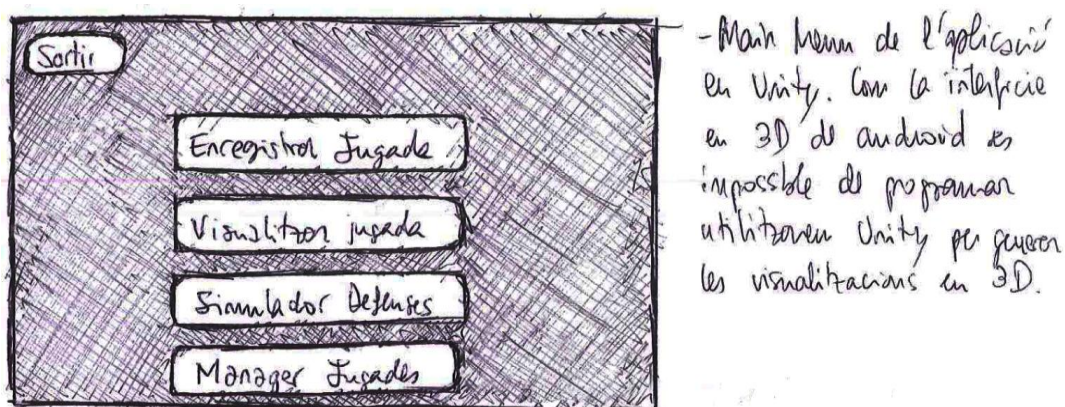 Sortir
Enregistrar Jugada
Visualitzar jugada
Simulador Defenses
Manager Jugades
- Main Menu de l'aplicació
en Unity. Com la interfície
en 3D de android es
impossible de programar
utilitzarem Unity per generar
les visualitzacions en 3D.